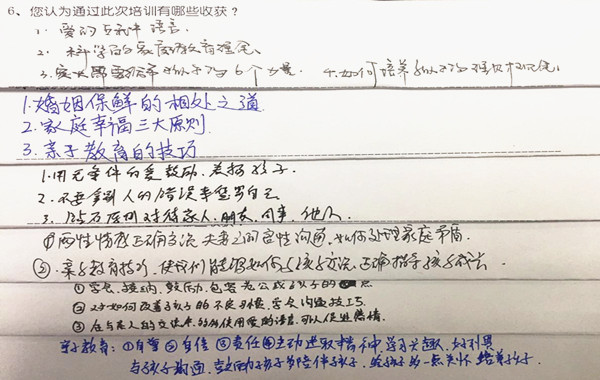 6、您认为通过此次培训有哪些收获？
1. 爱的五种语言.
2. 科学的家庭教育理念.
3. 孩子的6个 4. 如何培养孩子
1.婚姻保鲜的相处之道
2.家庭幸福三大原则
3.亲子教育的技巧
1.用无条件的爱鼓励.孩子
2.不要拿别人的错误来惩罚自己
3. 原则对待家人.朋友.同事.他人
①两性情感正确方法 夫妻之间良性沟通.如何处理家庭矛盾.
②.亲子教育技巧.使我们能够如何与孩子交流.正确指导孩子成长
①学会接纳,鼓励,包容老公或孩子的
②对如何改善孩子的不良习惯.学会沟通技巧.
③在与家人的交谈中的所使用爱的语言.可以促进感情.
亲子教育：①自尊②自信③责任④主动进取精神.学习兴趣.好习惯
与孩子沟通.鼓励孩子多陪伴孩子.给孩子多一点关怀 培养好孩子